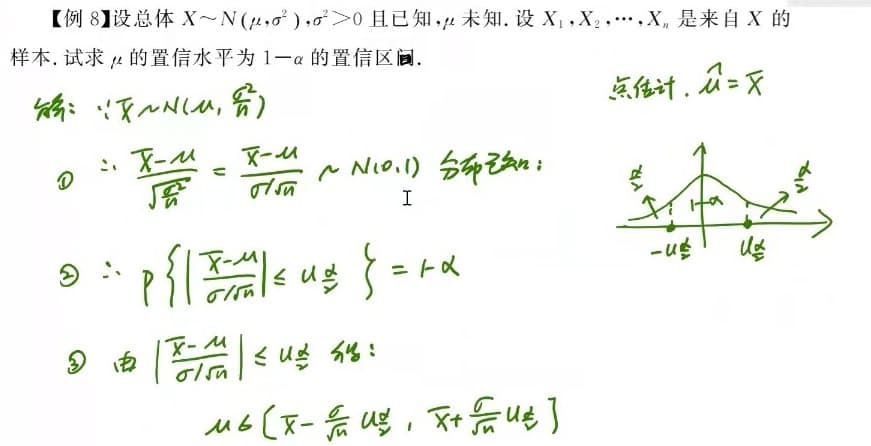 【例 8】设总体 X～N(μ,σ²),σ²＞0 且已知,μ 未知.设 X₁,X₂,⋯,Xₙ 是来自 X 的
样本.试求 μ 的置信水平为 1－α 的置信区间.
点估计. μ̂ = X̄
解: ∵ X̄ ~ N(μ, σ²/n)
① ∴ (X̄-μ)/√(σ²/n) = (X̄-μ)/(σ/√n) ~ N(0,1) 分布已知:
α/2 1-α α/2
-u_{α/2} u_{α/2}
② ∴ P{|(X̄-μ)/(σ/√n)| ≤ u_{α/2}} = 1-α
③ 由 |(X̄-μ)/(σ/√n)| ≤ u_{α/2} 得:
μ∈[X̄ - σ/√n u_{α/2}, X̄ + σ/√n u_{α/2}]